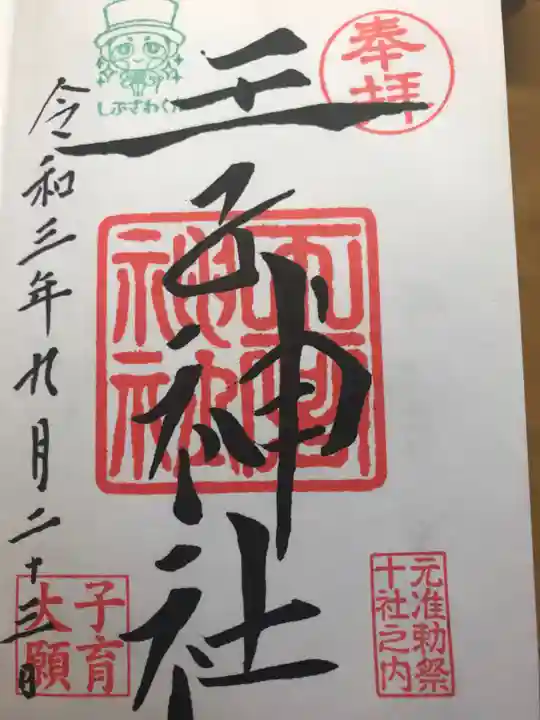 奉拝
王子神社
王子神社
元准勅祭
十社之内
しぶさわくん
令和三年九月二十三日
子育
大願